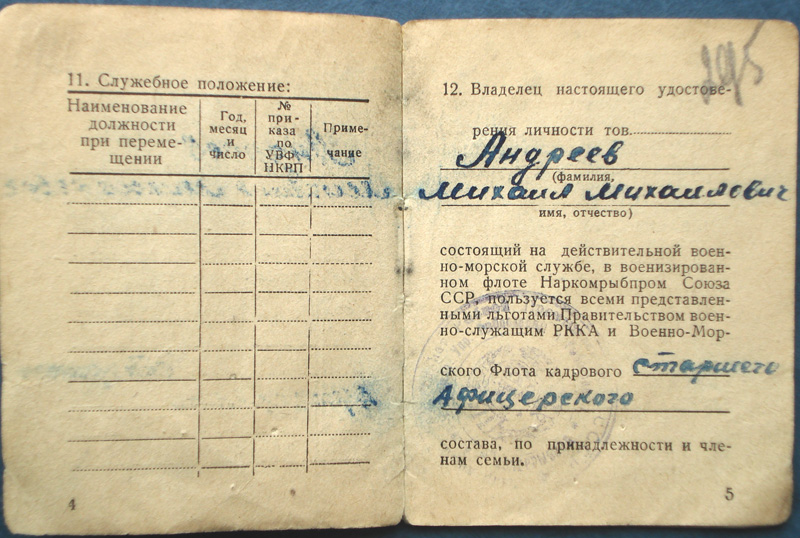 11. Служебное положение:
Наименование
должности
при переме-
щении
Год,
месяц
и
число
№
при-
каза
по
УВФ
НКРП
Приме-
чание
4
295
12. Владелец настоящего удостове-
рения личности тов.
Андреев
(фамилия,
Михаил Михаилович
имя, отчество)
состоящий на действительной воен-
но-морской службе, в военизирован-
ном флоте Наркомрыбпром Союза
ССР, пользуется всеми представлен-
ными льготами Правительством воен-
но-служащим РККА и Военно-Мор-
ского Флота кадрового старшего
Афицерского
состава, по принадлежности и чле-
нам семьи.
5